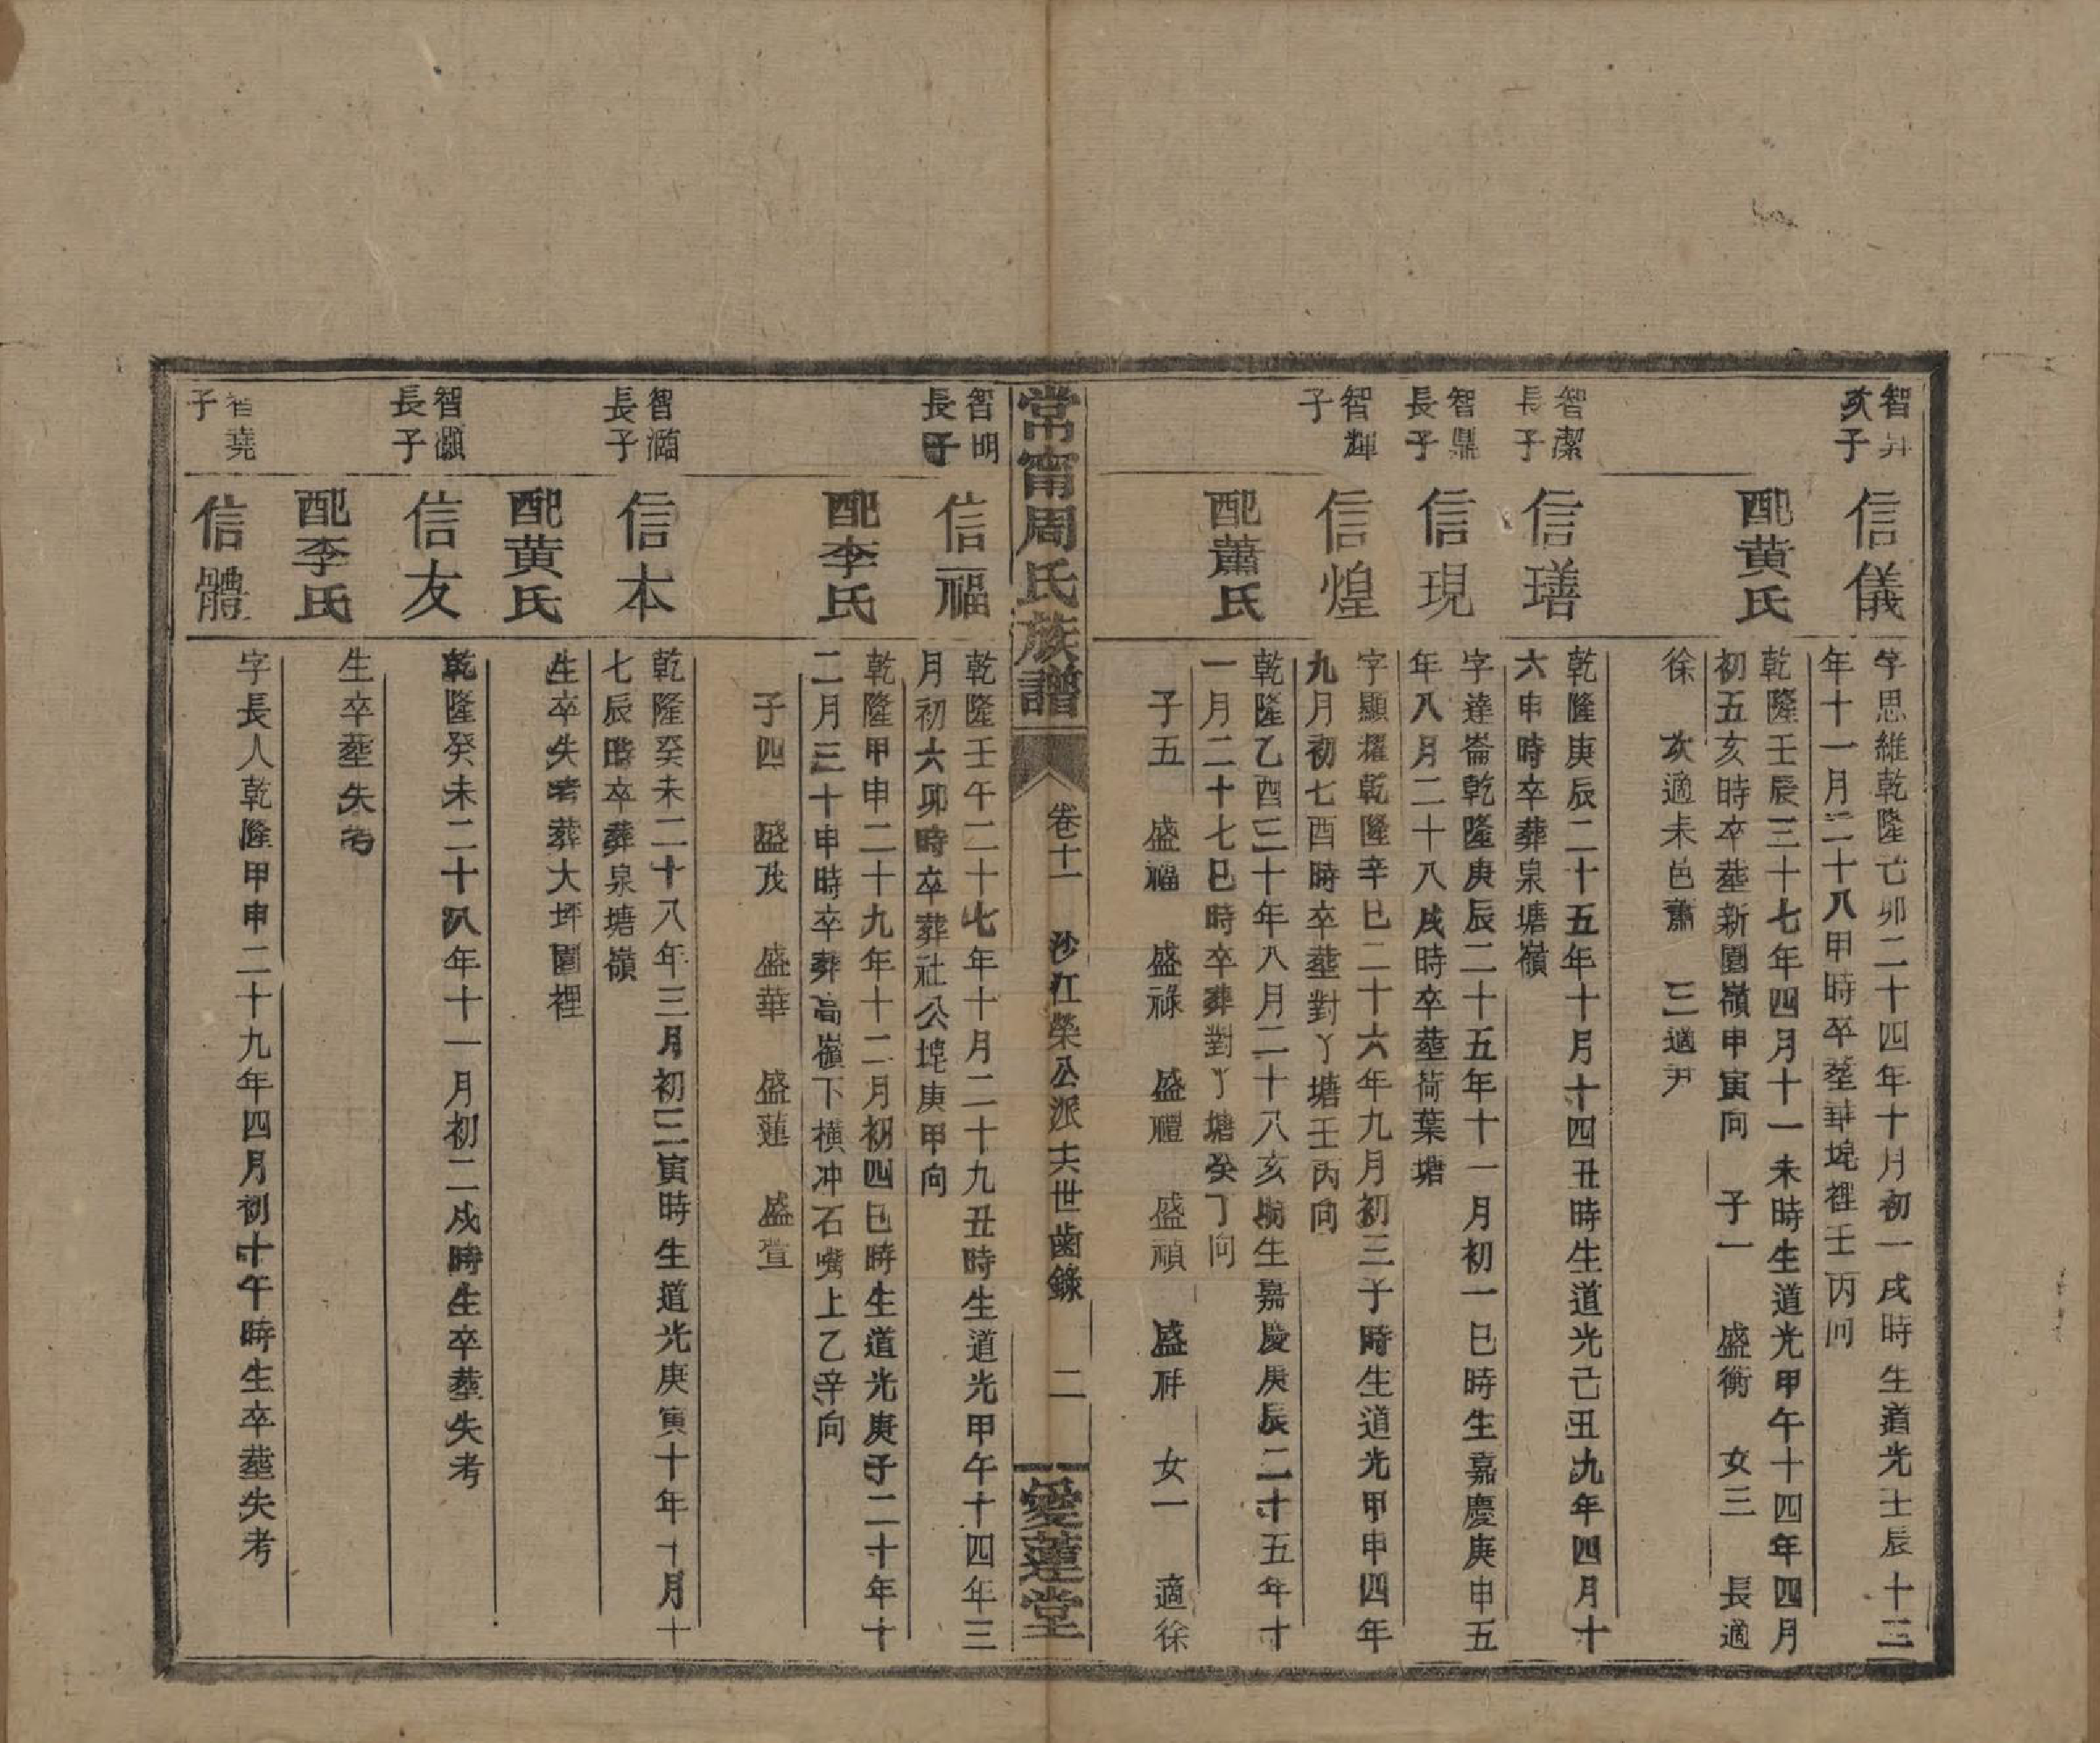 智昇
次子
信儀
字思維乾隆己卯二十四年十月初一戌時生道光壬辰十二
年十一月二十八甲時卒塟華塊裡壬丙向
配黃氏
乾隆壬辰三十七年四月十一未時生道光甲午十四年四月
初五亥時卒塟新園嶺申寅向　子一　盛衡　女三　長適
徐　次適未邑蕭　三適尹
智潔
長子
信璿
乾隆庚辰二十五年十月十四丑時生道光己丑九年四月十
六申時卒葬泉塘嶺
智鼎
長子
信現
字達崙乾隆庚辰二十五年十一月初一巳時生嘉慶庚申五
年八月二十八戌時卒塟荷葉塘
智輝
子
信煌
字顯耀乾隆辛巳二十六年九月初三子時生道光甲申四年
九月初七酉時卒塟對丫塘壬丙向
配蕭氏
乾隆乙酉三十年八月二十八亥時生嘉慶庚辰二十五年十
一月二十七巳時卒葬對丫塘癸丁向
子五　盛福　盛祿　盛禮　盛禎　盛祥　女一　適徐
常甯周氏族譜
卷十一　沙江榮公派六世齒錄　二
愛蓮堂
智明
長子
信福
乾隆壬午二十七年十月二十九丑時生道光甲午十四年三
月初六卯時卒葬社公塊庚甲向
配李氏
乾隆甲申二十九年十二月初四巳時生道光庚子二十年十
二月三十申時卒葬高嶺下橫冲石嘴上乙辛向
子四　盛茂　盛華　盛蓮　盛萱
智瀰
長子
信本
乾隆癸未二十八年三月初三寅時生道光庚寅十年十月十
七辰時卒葬泉塘嶺
配黃氏
生卒失考葬大坪園裡
智灝
長子
信友
乾隆癸未二十八年十一月初二戌時生卒塟失考
配李氏
生卒塟失考
智堯
子
信體
字長人乾隆甲申二十九年四月初十午時生卒塟失考